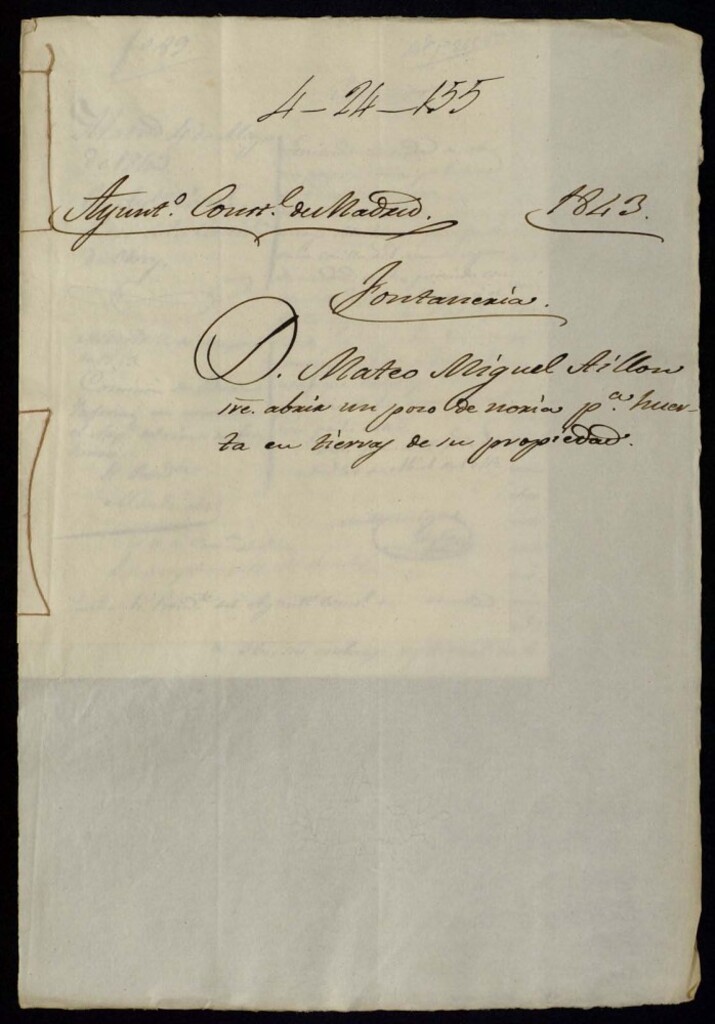 4-24-155
Ayunt.º Const.l de Madrid. 1843.
Fontaneria.
D. Mateo Miguel Aillon
abrir un pozo de noria p.a huer-
ta en tierras de su propiedad.